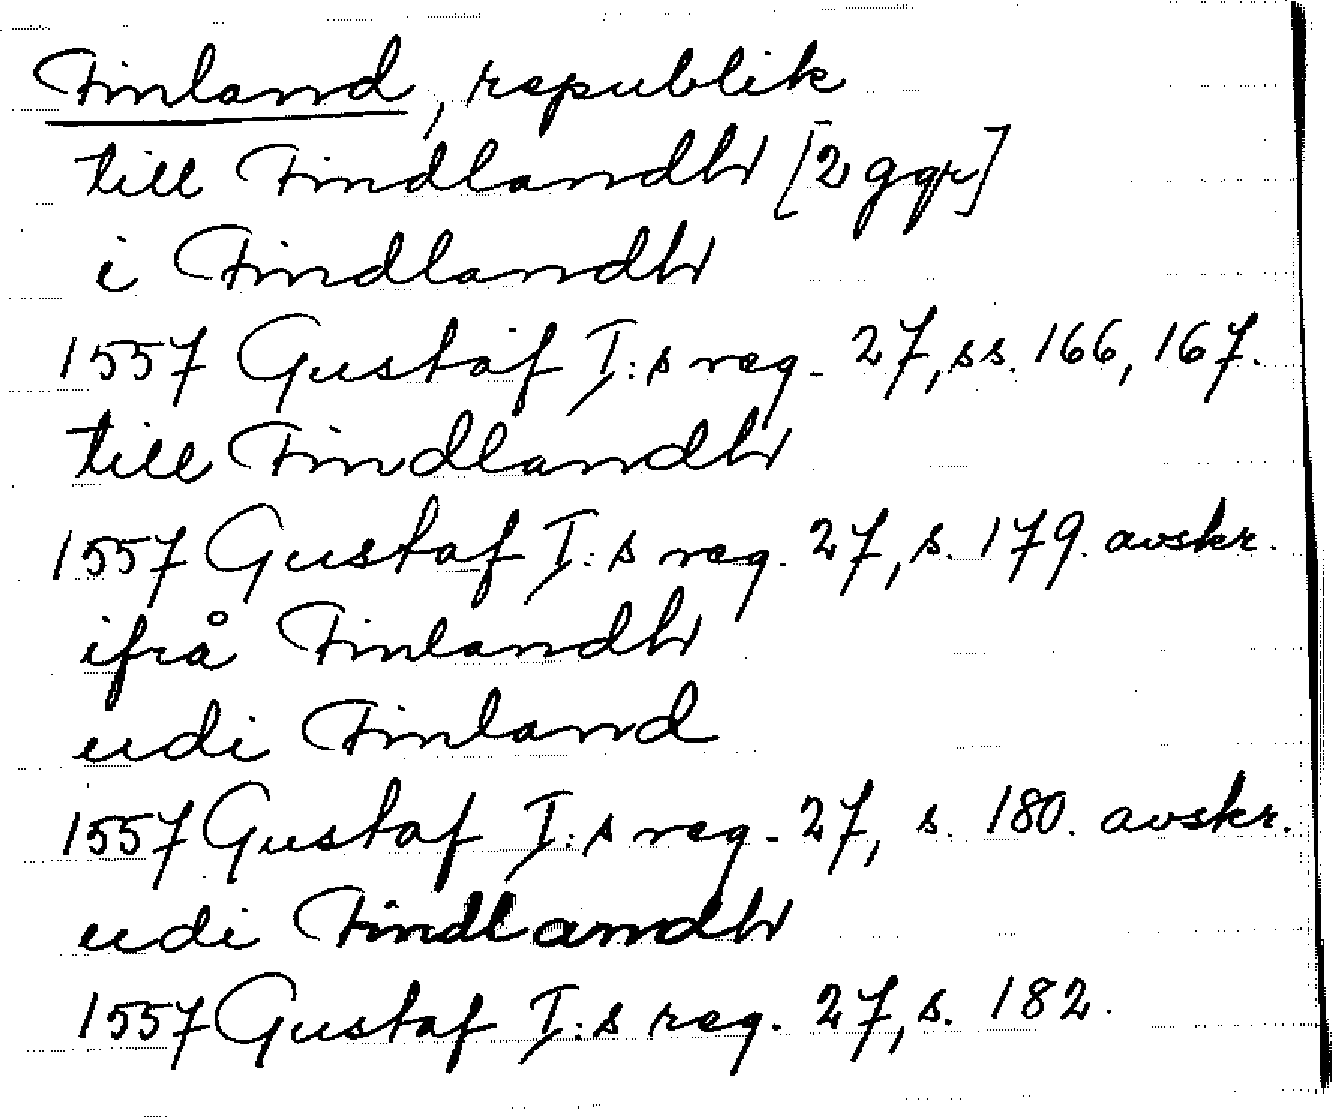 Finland, republik
till Findlandh [2 ggr]
i Findlandh
1557 Gustaf I:s reg. 27, ss. 166, 167.
till Findlandh
1557 Gustaf I:s reg. 27, s. 179. avskr.
ifrå Finlandh
udi Finland
1557 Gustaf I:s reg. 27, s. 180. avskr.
udi Findlandh
1557 Gustaf I:s reg. 27, s. 182.